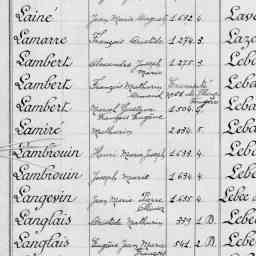 Lainé Jean Marie August 1.692 4. Lave
Lamarre François Aristide 1.274 3. Laze
Lambert Alexandre Joseph Marie 1.275 3. Leba
Lambert François Mathurin Leba
Lambert Marcel Gustave François Eugène 1.504 5. Leba
Lamiré Mathurin 2.034 5. Leba
Lambrouin Henri Marie Joseph 1.633 4. Leba
Lambrouin Joseph Marie 1.634 4. Leba
Langevin Jean Marie Pierre 1.635 4. Lebec
Langlais Aristide Mathurin 359 1 B. Leb
Langlais Eugène Jean Marie François 541 2 B. Leb